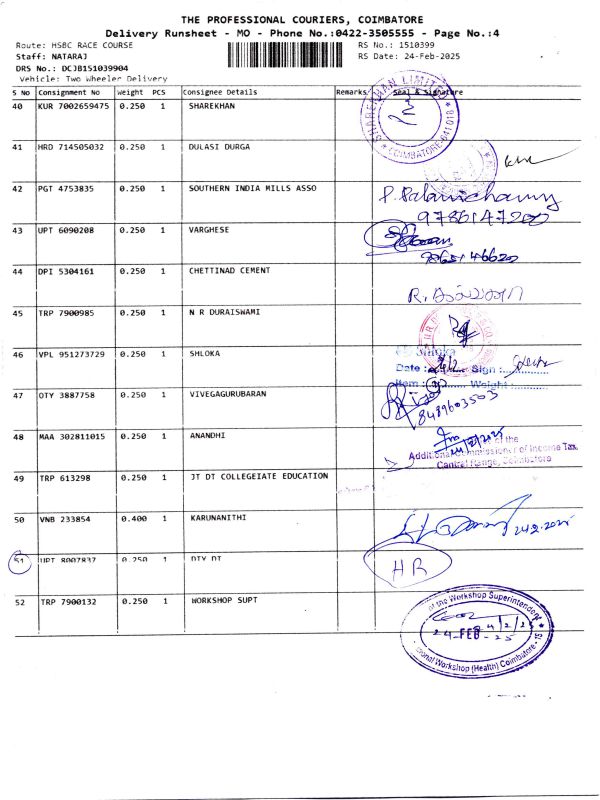 THE PROFESSIONAL COURIERS, COIMBATORE
Delivery Runsheet - MO - Phone No.:0422-3505555 - Page No.:4
Route: HSBC RACE COURSE
RS No.: 1510399
Staff: NATARAJ
RS Date: 24-Feb-2025
DRS No.: DCJB151039904
Vehicle: Two Wheeler Delivery
S No Consignment No Weight PCS Consignee Details Remarks Seal & Signature
40 KUR 7002659475 0.250 1 SHAREKHAN
SHAREKHAN LIMITED
* COIMBATORE-641018 *
41 HRD 714505032 0.250 1 DULASI DURGA
42 PGT 4753835 0.250 1 SOUTHERN INDIA MILLS ASSO
P. Palanichamy
9786147200
43 UPT 6090208 0.250 1 VARGHESE
9865146620
44 DPI 5304161 0.250 1 CHETTINAD CEMENT
45 TRP 7900985 0.250 1 N R DURAISWAMI
46 VPL 951273729 0.250 1 SHLOKA
Shloka
Date : 24/2 Sign :
Item : Weight :
47 OTY 3887758 0.250 1 VIVEGAGURUBARAN
8489603503
48 MAA 302811015 0.250 1 ANANDHI
24/2/2025
of the
Additional Commissioner of Income Tax,
Central Range, Coimbatore
49 TRP 613298 0.250 1 JT DT COLLEGEIATE EDUCATION
50 VNB 233854 0.400 1 KARUNANITHI
24.2.2025
51 UPT 8007837 0.250 1 DTY DT
HR
52 TRP 7900132 0.250 1 WORKSHOP SUPT
of the Workshop Superintendent
24/2/25
24-FEB-25
Workshop (Health) Coimbatore - 18